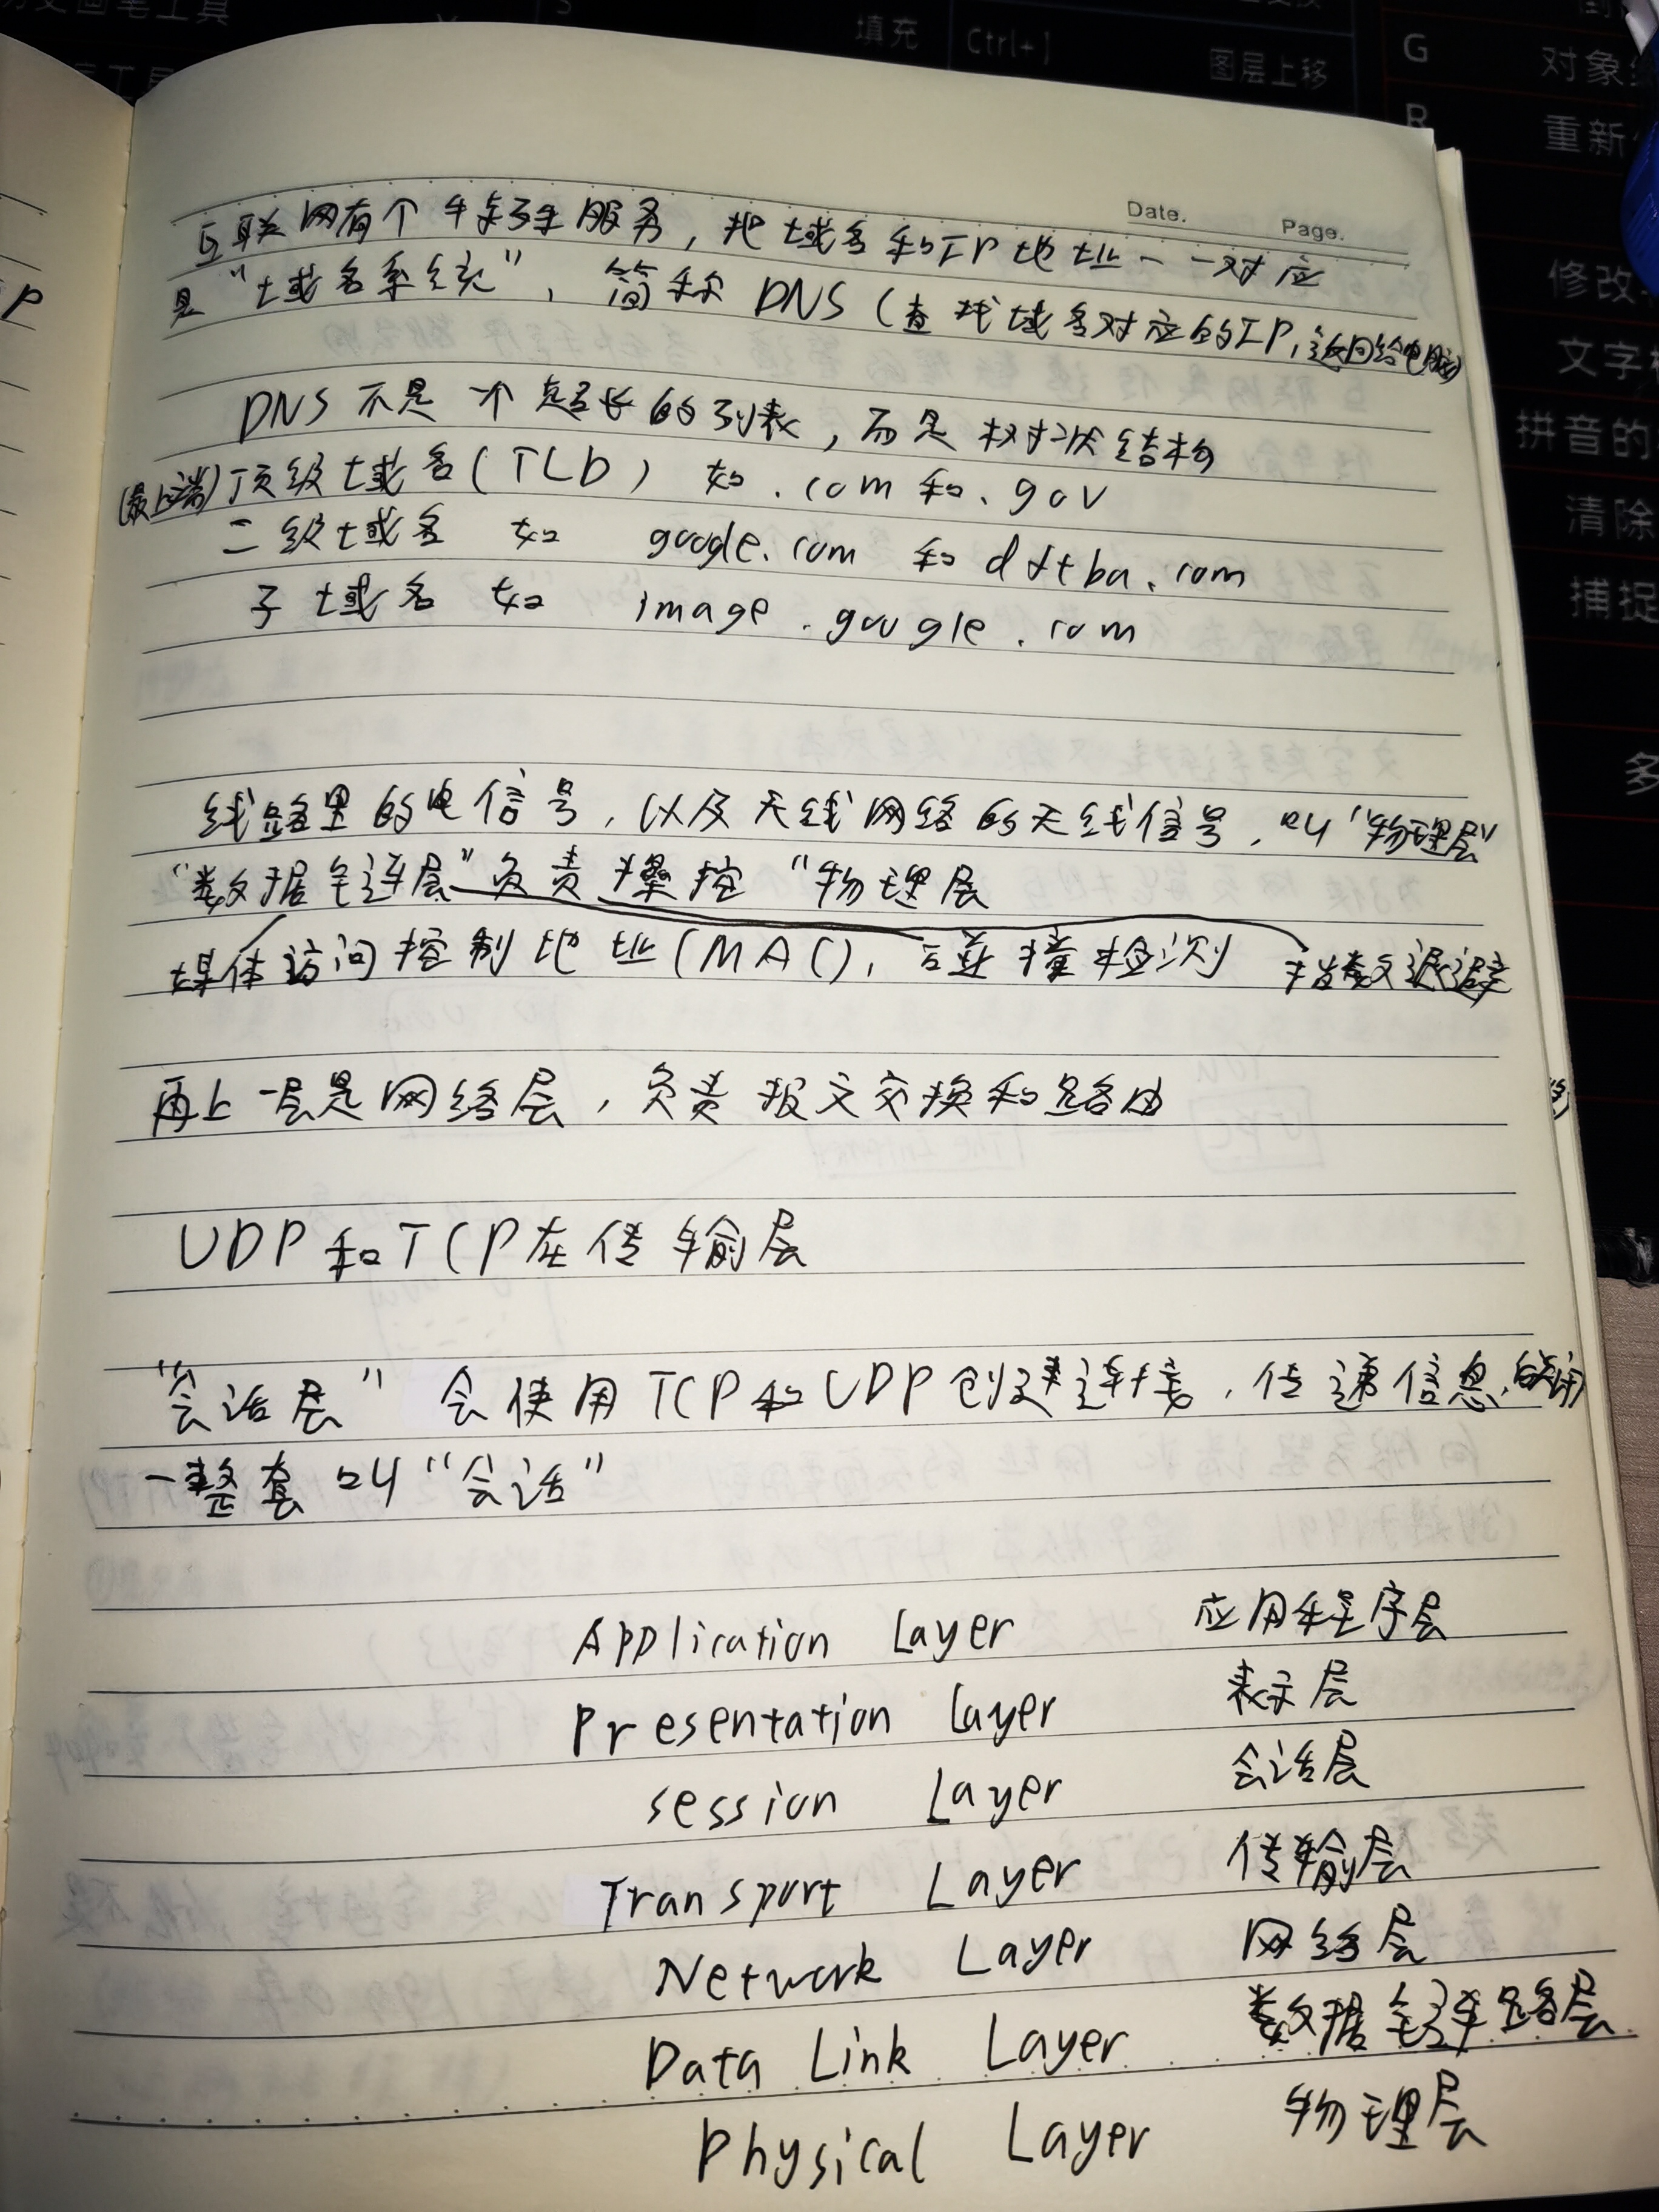 填充
Ctrl+]
图层上移
G
对象
R
重新
修改
文字
拼音的
清除
捕捉
多
Date.
Page.
P
互联网有个特殊服务，把域名和IP地址一一对应
是“域名系统”，简称DNS（查找域名对应的IP，返回给电脑）
DNS不是一个超长的列表，而是树状结构
(最上端)顶级域名(TLD) 如.com和.gov
二级域名 如 google.com 和 dftba.com
子域名 如 image.google.com
线路里的电信号，以及无线网络的无线信号，叫“物理层”
“数据链连层”负责操控“物理层
媒体访问控制地址(MAC)，碰撞检测 指数退避
再上一层是网络层，负责报文交换和路由
UDP和TCP在传输层
“会话层” 会使用TCP和UDP创建连接，传递信息，
一整套叫“会话”
Application Layer 应用程序层
Presentation Layer 表示层
Session Layer 会话层
Transport Layer 传输层
Network Layer 网络层
Data Link Layer 数据链路层
Physical Layer 物理层